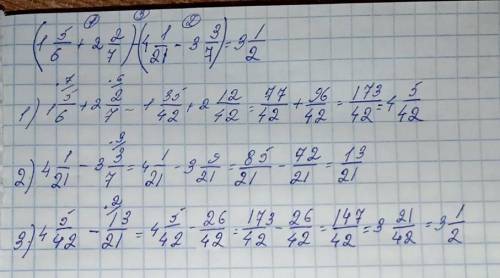 ① ③ ②
(1 5/6 + 2 2/7) - (4 1/21 - 3 3/7) = 3 1/2
1) 1 5/6 ·7 + 2 2/7 ·6 = 1 35/42 + 2 12/42 = 77/42 + 96/42 = 173/42 = 4 5/42
2) 4 1/21 - 3 3/7 ·3 = 4 1/21 - 3 9/21 = 85/21 - 72/21 = 13/21
3) 4 5/42 - 13/21 ·2 = 4 5/42 - 26/42 = 173/42 - 26/42 = 147/42 = 3 21/42 = 3 1/2